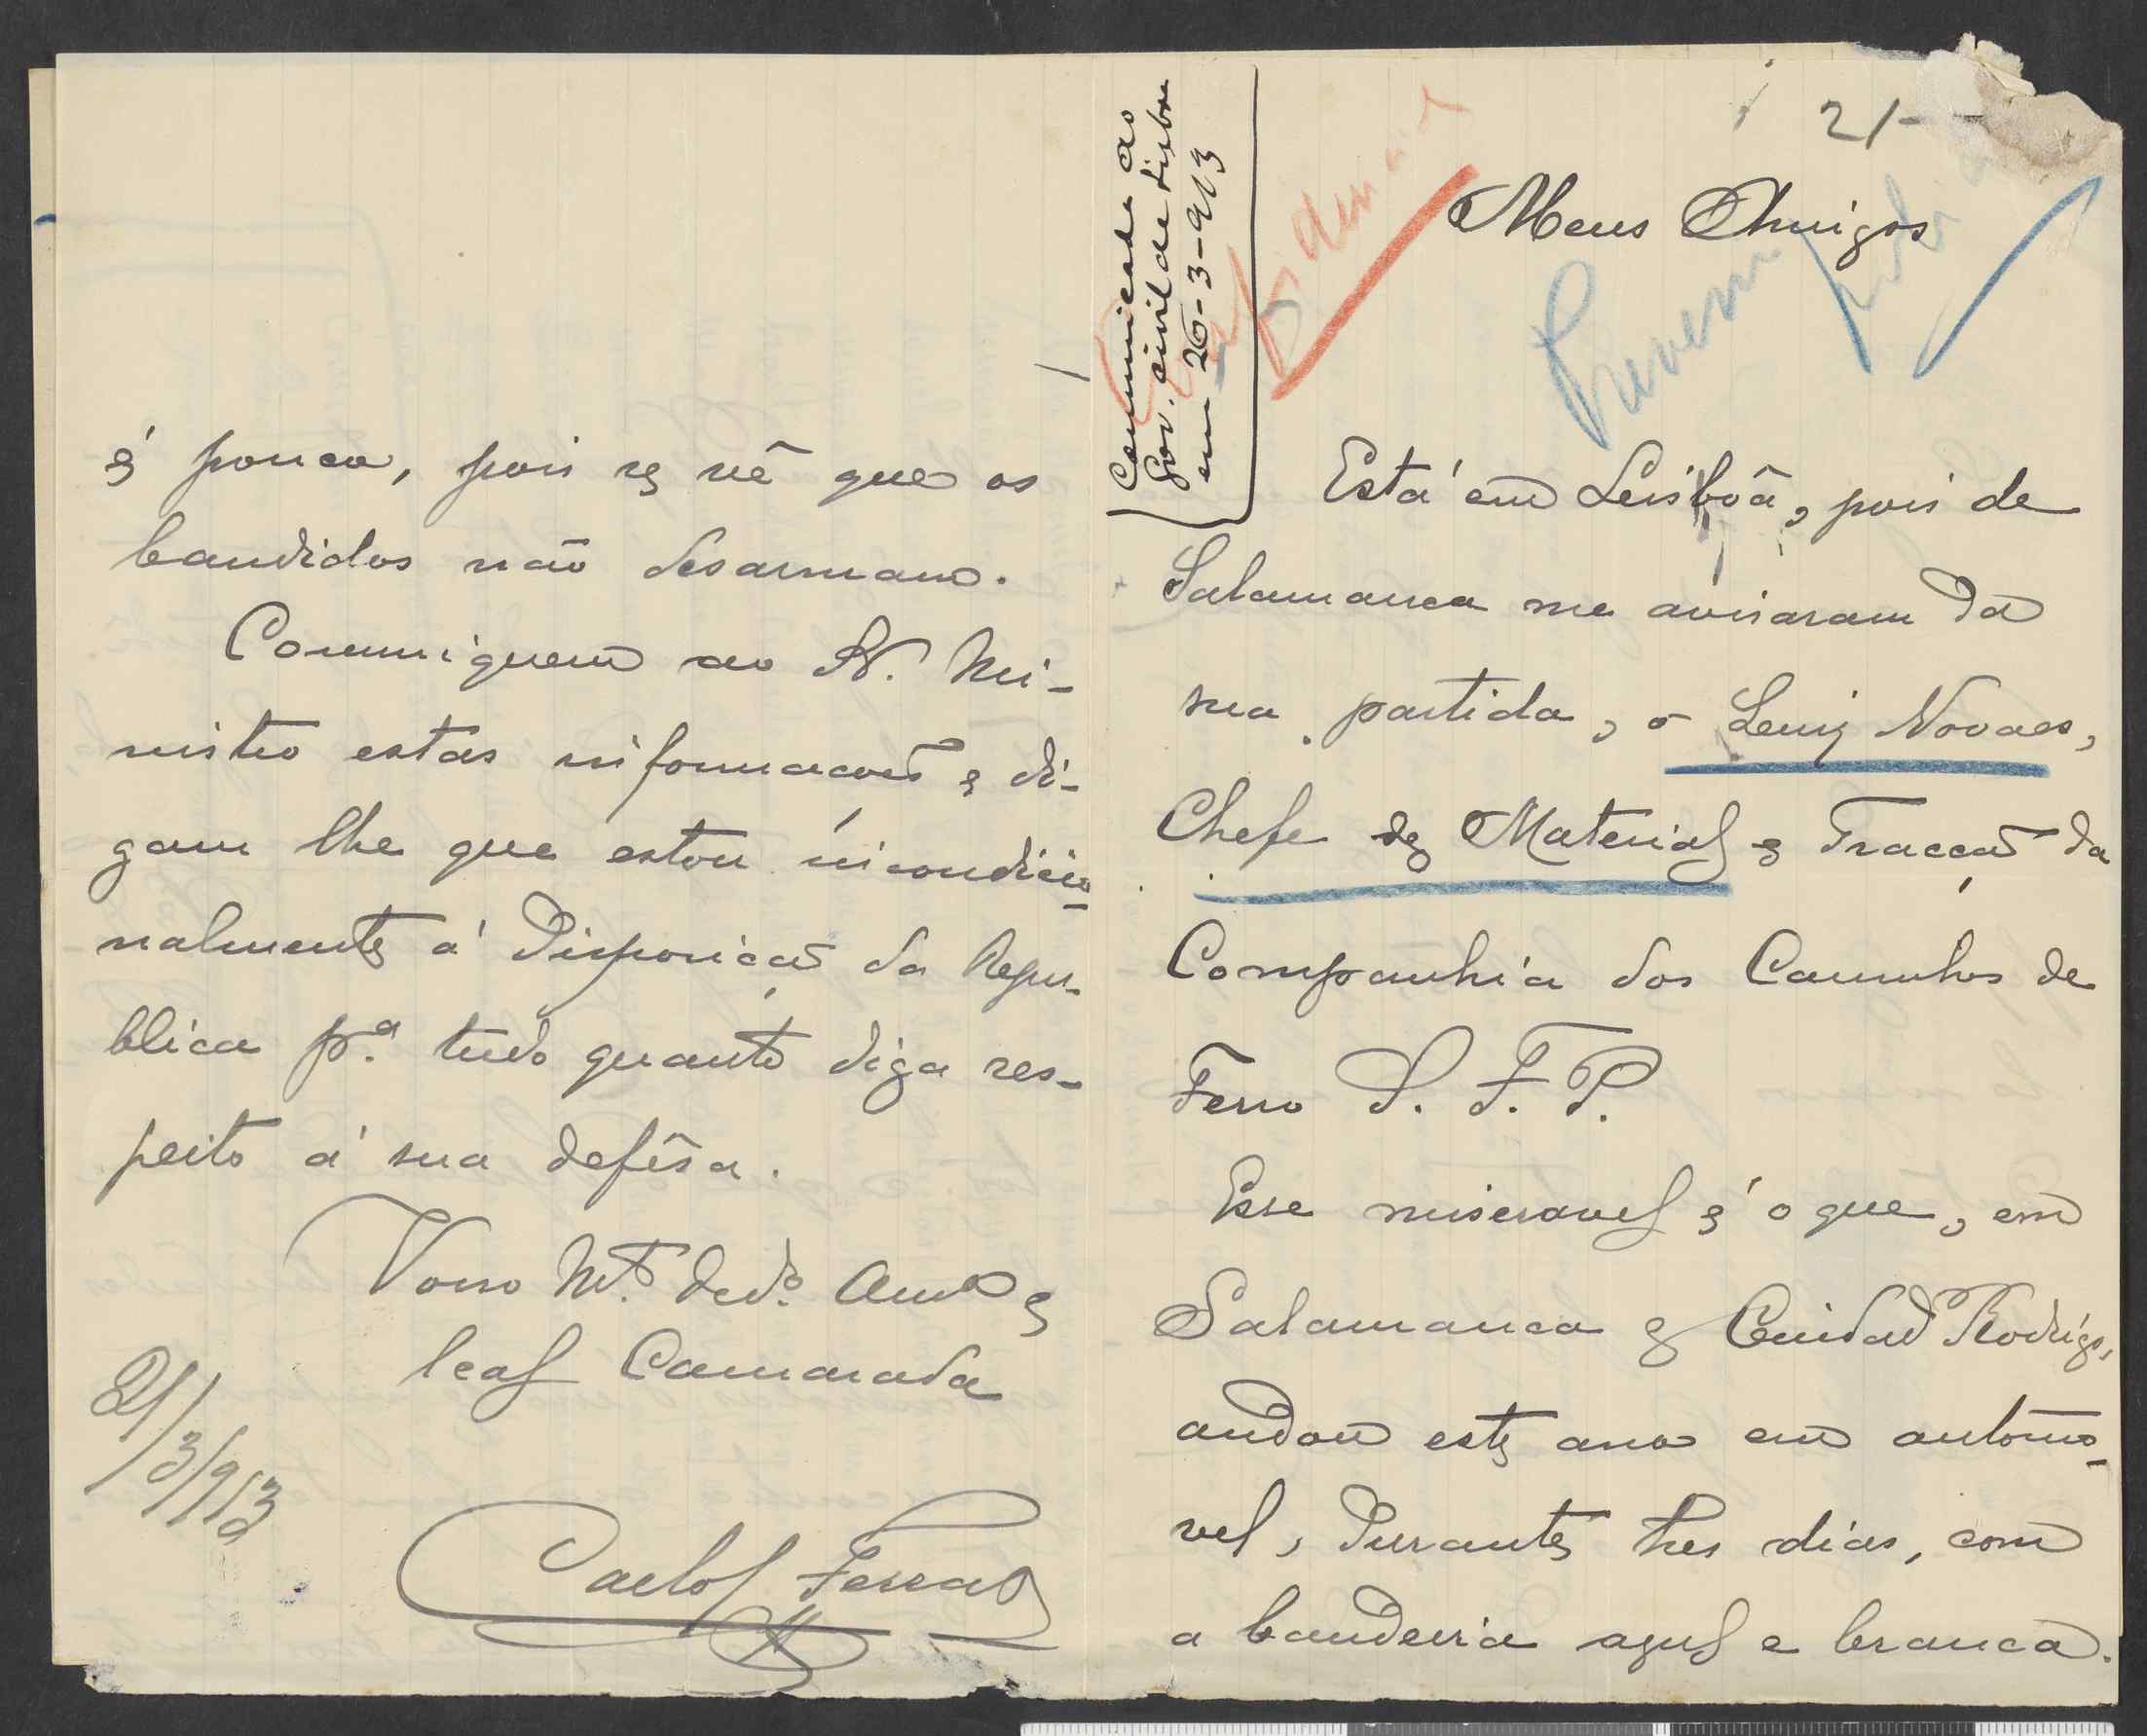 21-
Meus Amigos
Communicado ao
Gov. civil de Lisboa
em 26-3-913
Está em Lisbôa, pois de
Salamanca me avisaram da
sua partida, o Luiz Novaes,
Chefe de Material e Tracção da
Companhia dos Caminhos de
Ferro S. F. P.
Esse miseravel é o que, em
Salamanca e Cuidad Rodrigo,
andou este ano em automo-
vel, durante tres dias, com
a bandeira azul e branca.
é pouca, pois se vê que os
bandidos não desarmam.
Communiquem ao Sr. Mi-
nistro estas informações e di-
gam lhe que estou incondicio-
nalmente á disposição da Repu-
blica p.ª tudo quanto diga res-
peito á sua defêsa.
Vosso Mt.º ded.º Amº e
leal Camarada
21/3/913
Carlos Ferraz